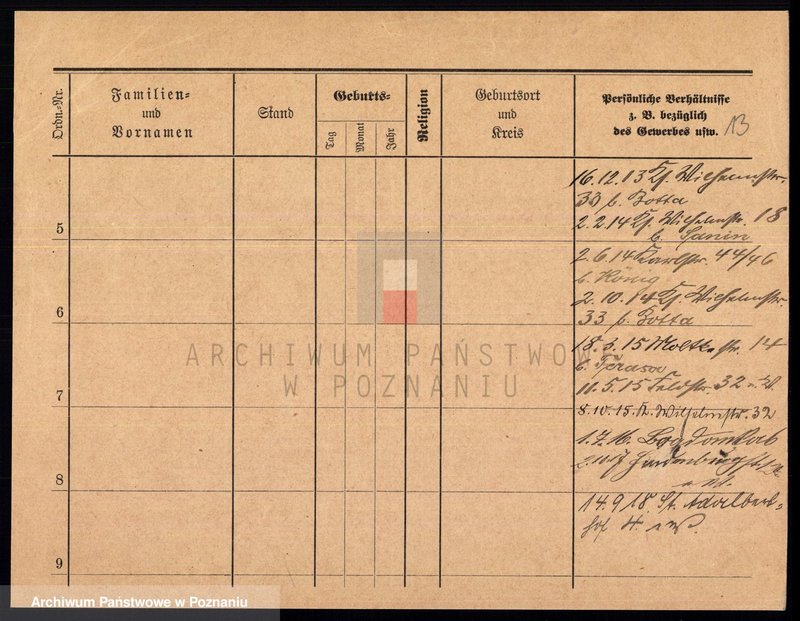 Ordn.-Nr.
Familien-
und
Vornamen
Stand
Geburts-
Tag
Monat
Jahr
Religion
Geburtsort
und
Kreis
Persönliche Verhältnisse
z. B. bezüglich
des Gewerbes usw.
13
16.12.13 Kf. Wilhelmstr.
33 b. Botta
5
2.2.14 Kf. Wilhelmstr. 18
b. Janin
2.6.14 Karlstr. 44/46
b. König
6
2.10.14 Kf. Wilhelmstr.
33 b. Botta
5.15 Moltkestr. 14
b.
7
11.5.15 Feldstr. 32
8.10.15. K. Wilhelmstr. 32
8
14.9.18. St. Adalbert-
hof 4.
9
ARCHIWUM PAŃSTWOWE
W POZNANIU
Archiwum Państwowe w Poznaniu